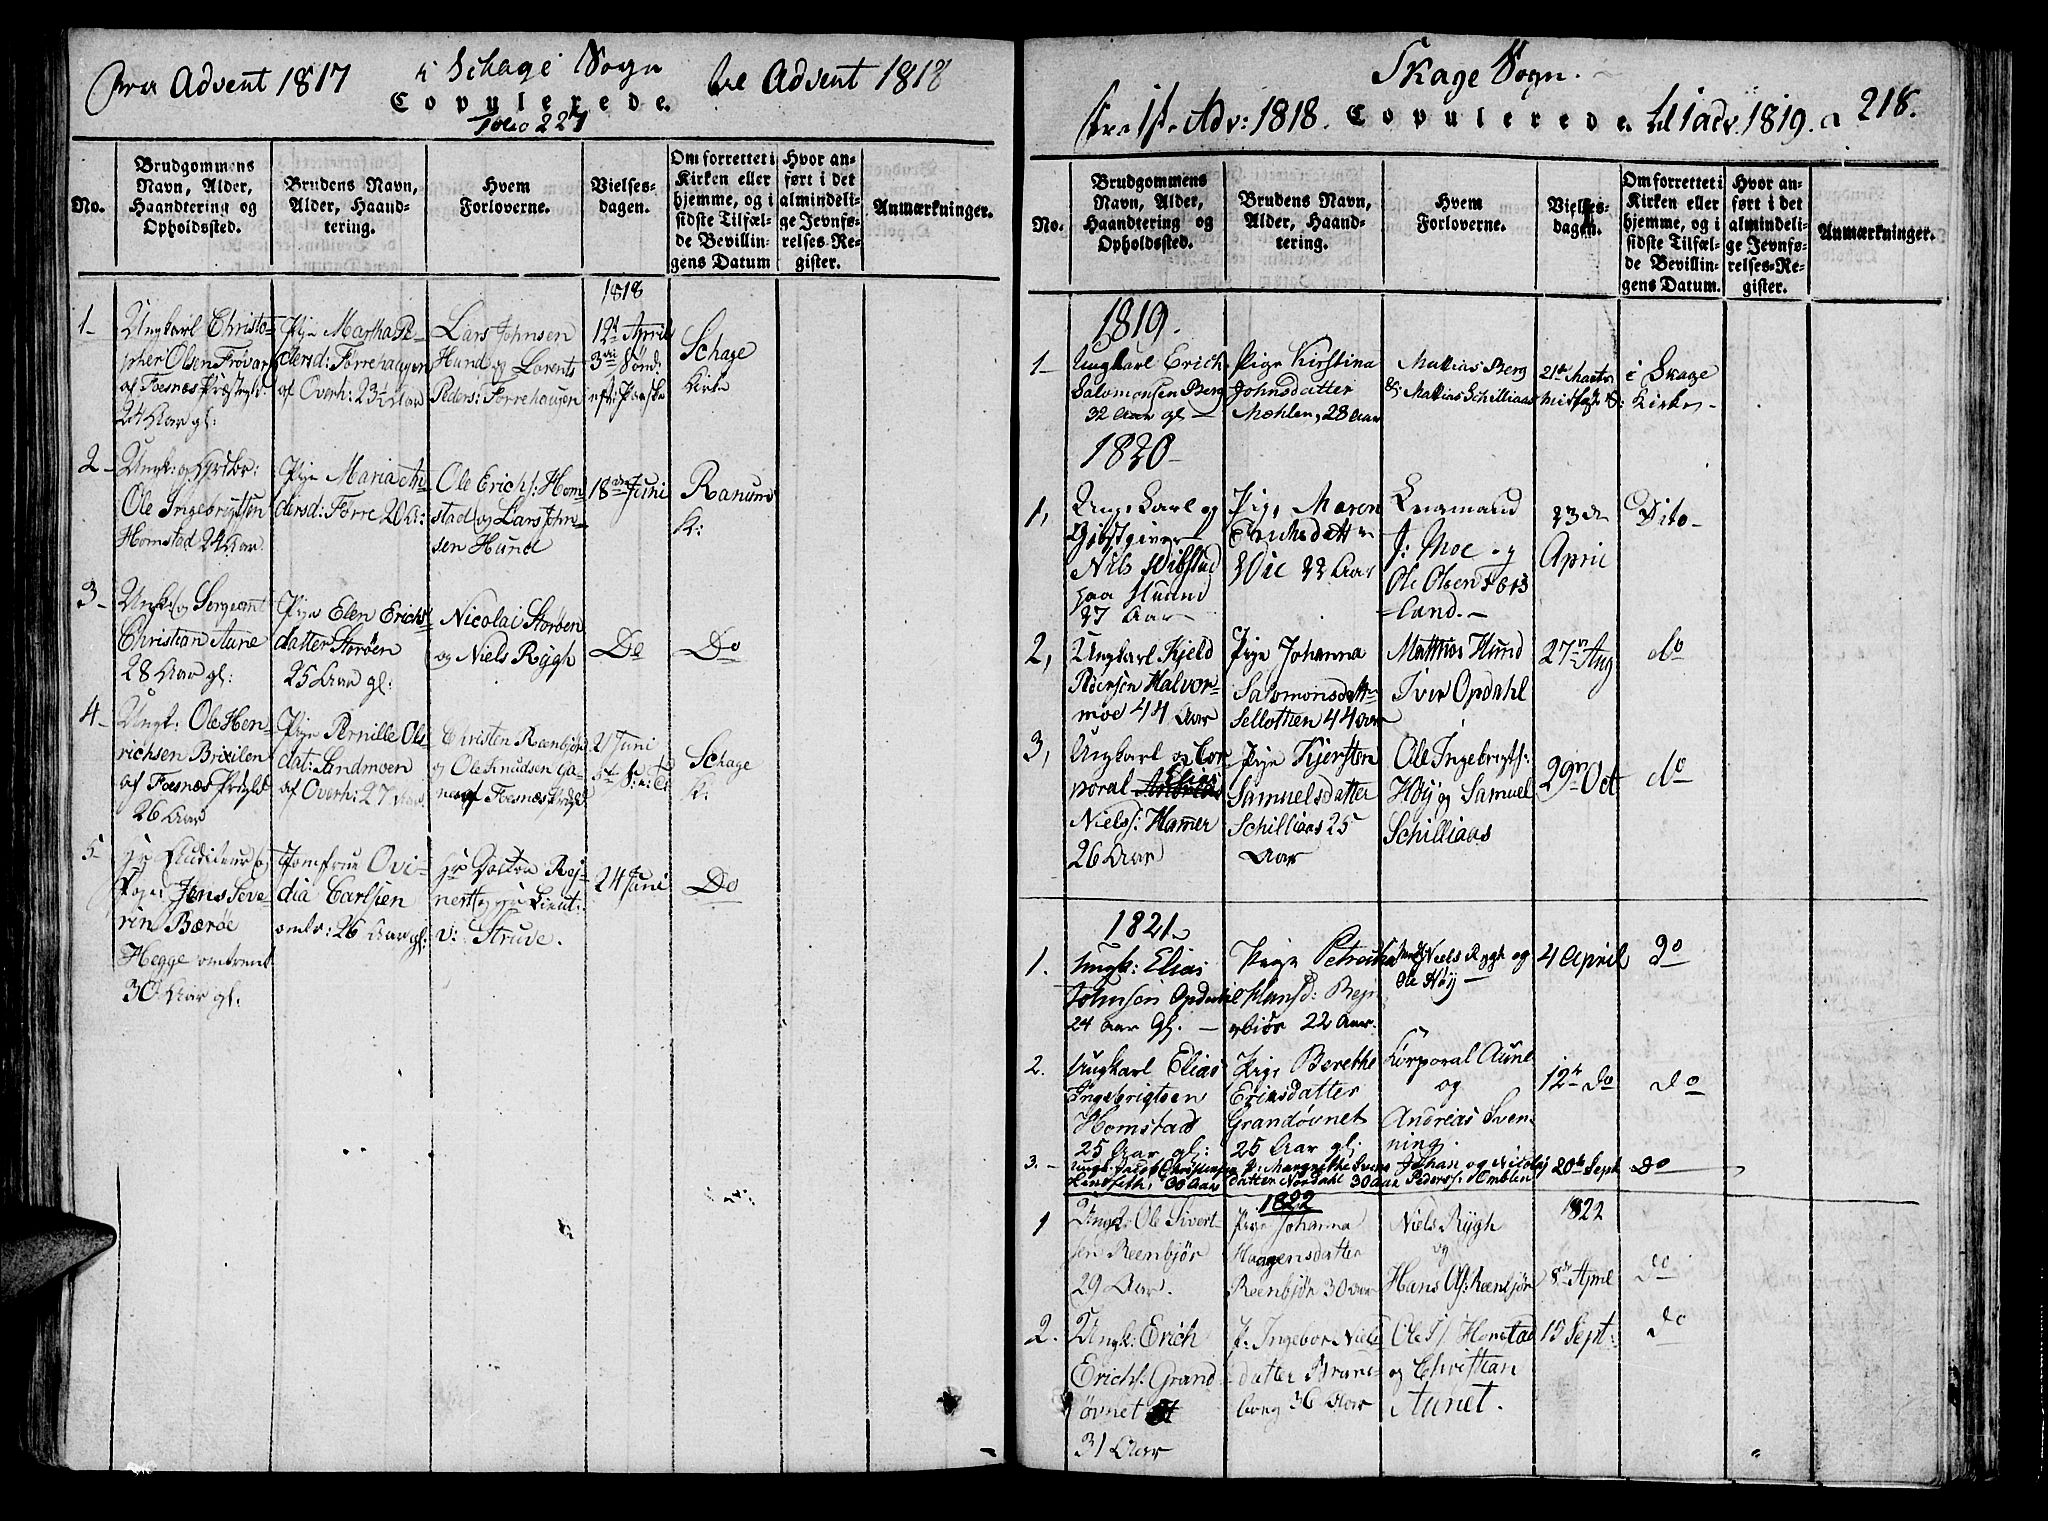 Fra Advent 1817 i Schage Sogn til Advent 1818
Copulerede.
Folio 227
No.
Brudgommens Navn, Alder, Haandtering og Opholdssted.
Brudens Navn, Alder, Haandtering.
Hvem Forloverne.
Vielsesdagen.
Om forrettet i Kirken eller hjemme, og i sidste Tilfælde Bevillingens Datum
Hvor anført i det almindelige Jevnførelses-Register.
Anmærkninger.
1818
1-
Ungkarl Christo-
pher Olsen Frövar
af Foesnæs Præstegl:
24 Aar gl:
Pige Martha Pe-
dersd: Förrehaugen
af Overh: 23½ Aar
Lars Johnsen
Hund og Lorents
Peders: Förrehaugen
12t April
3die Sönd:
eft: Paaske
Schage
Kirke
2-
Ungk: og
Ole Ingebrigtsen
Homstad 24 Aar
Pige Maria An-
dersd: Förre 20 A:
Ole Erichs: Hom-
stad og Lars John-
sen Hund
18de Juni
Ranum
K:
3-
Ungk: og Sergeant
Christian Aune
28 Aar gl:
Pige Elen Erichs-
datter Storöen
25 Aar gl:
Nicolai Storöen
og Niels Rÿgh
Do
Do
4-
Ungk: Ole Hen
richsen Brixilen
af Foesnæs Prgld
26 Aar
Pige Pernille Ols-
dat: Sandmoen
af Overh: 27 Aar
Christen Reenbjör
og Ole Knudsen
af Foesnæs Prgld
21 Juni
Schage
K:
5-
Hr
Jens Seve-
rin Bæröe
Hegge omtrent
30 Aar gl:
Jomfrue Ovi-
dia Carlsen
omtr: 26 Aar gl:
Hr Doctor Rej-
nert og Lieut:
v: Struve.
24 Juni
Do
Skage Sogn.
Fra 1ste Adv: 1818. Copulerede. til 1 adv. 1819. 218.
No.
Brudgommens Navn, Alder, Haandtering og Opholdssted.
Brudens Navn, Alder, Haandtering.
Hvem Forloverne.
Vielsesdagen.
Om forrettet i Kirken eller hjemme, og i sidste Tilfælde Bevillingens Datum.
Hvor anført i det almindelige Jevnførelses-Register.
Anmærkninger.
1819.
1-
Ungkarl Erich
Salomonsen Berg
32 Aar gl
Pige Kirstina
Johnsdatter
Mæhlen, 28 Aar
Mathias Berg
& Mathias Schilliaas
21de Marts
i Skage
Kirke-
1820
1,
Ungkarl og
Gjæstgiver
Nils Wibstad
paa Hund
27 Aar
Pige Maren
Erichsdatter
Wie 22 Aar
Lensmand
J: Moe og
Ole Olsen Fors
land.-
23de
April
Dito-
2,
Ungkarl Kjeld
Pedersen Halvor-
moe 44 Aar
Pige Johanna
Salomonsdatt
Sellothen 44 aar
Matthias Hund
Iver Opdahl
27n Aug
do
3,
Ungkarl og Cor
poral Elias
Niels: Hamer
26 Aar
Pige Kjersten
Samuelsdatter
Schilliaas 25
Aar
Ole Ingebrigts:
Höÿ og Samuel
Schilliaas
29n Oct
do
1821.
1.
Ungk: Elias
Johnsen Opdahl
24 aar gl.
Pige Petricka
Hansd: Rey-
22 Aar.
Niels Rygh og
Ole Höÿ
4 April
Do
2.
Ungkarl Elias
Ingebrigtsen
Homstad
25 Aar gl:
Pige Berethe
Ericsdatter
Grandövnet
25 Aar gl:
Corporal Aune
og
Andreas Sven-
ning.
12te do
do
3.-
Ungk: Jacob Christensen
30 Aar
P: Margrethe Svens
datter Nordahl 30 Aar
Johan og Nicolaj
Peders: Amblin
20de Sept
Do
1822
1822
1
Ungk: Ole Sivert-
sen Reenbjör
29 Aar.
Pige Johanna
Haagensdatter
Reenbjör 30 aar
Niels Rÿgh
og
Hans Ols: Reenbjör
8de April
do
2.
Ungk: Erich
Erichs: Grand
övnet
31 Aar
P: Ingebor Niels
datter Brand-
borg 36 Aar
Ole I: Homstad
og Christian
Aunet.
15 Sept:
do